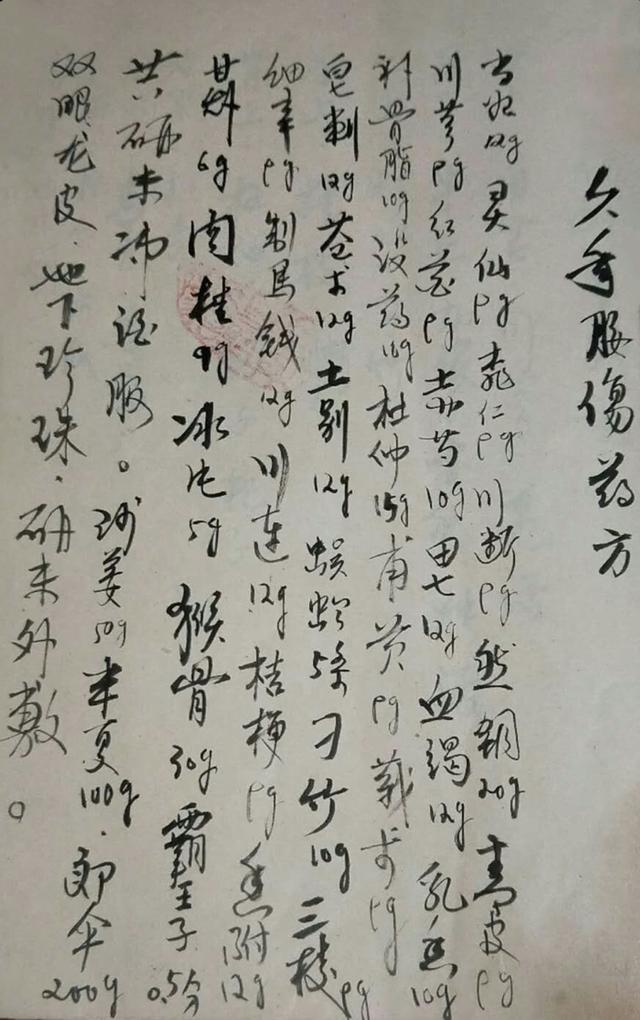 久年腰傷药方
当归12g 灵仙9g 桃仁9g 川断9g 然铜20g 青皮9g
川芎9g 红花9g 赤芍10g 田七12g 血竭12g 乳香10g
补骨脂10g 没药10g 杜仲15g 甫黄9g 莪术9g
皂刺12g 苍术12g 土别12g 蜈蚣5条 刁竹10g 三棱9g
细辛9g 制马钱12g 川连12g 桔梗9g 香附12g
甘草6g 肉桂9g 冰片5g 猴骨30g 霸王子0.5分
共研末冲酒服。
沙姜50g 半夏100g. 郎伞200g
双眼龙皮. 地下珍珠. 研末外敷。